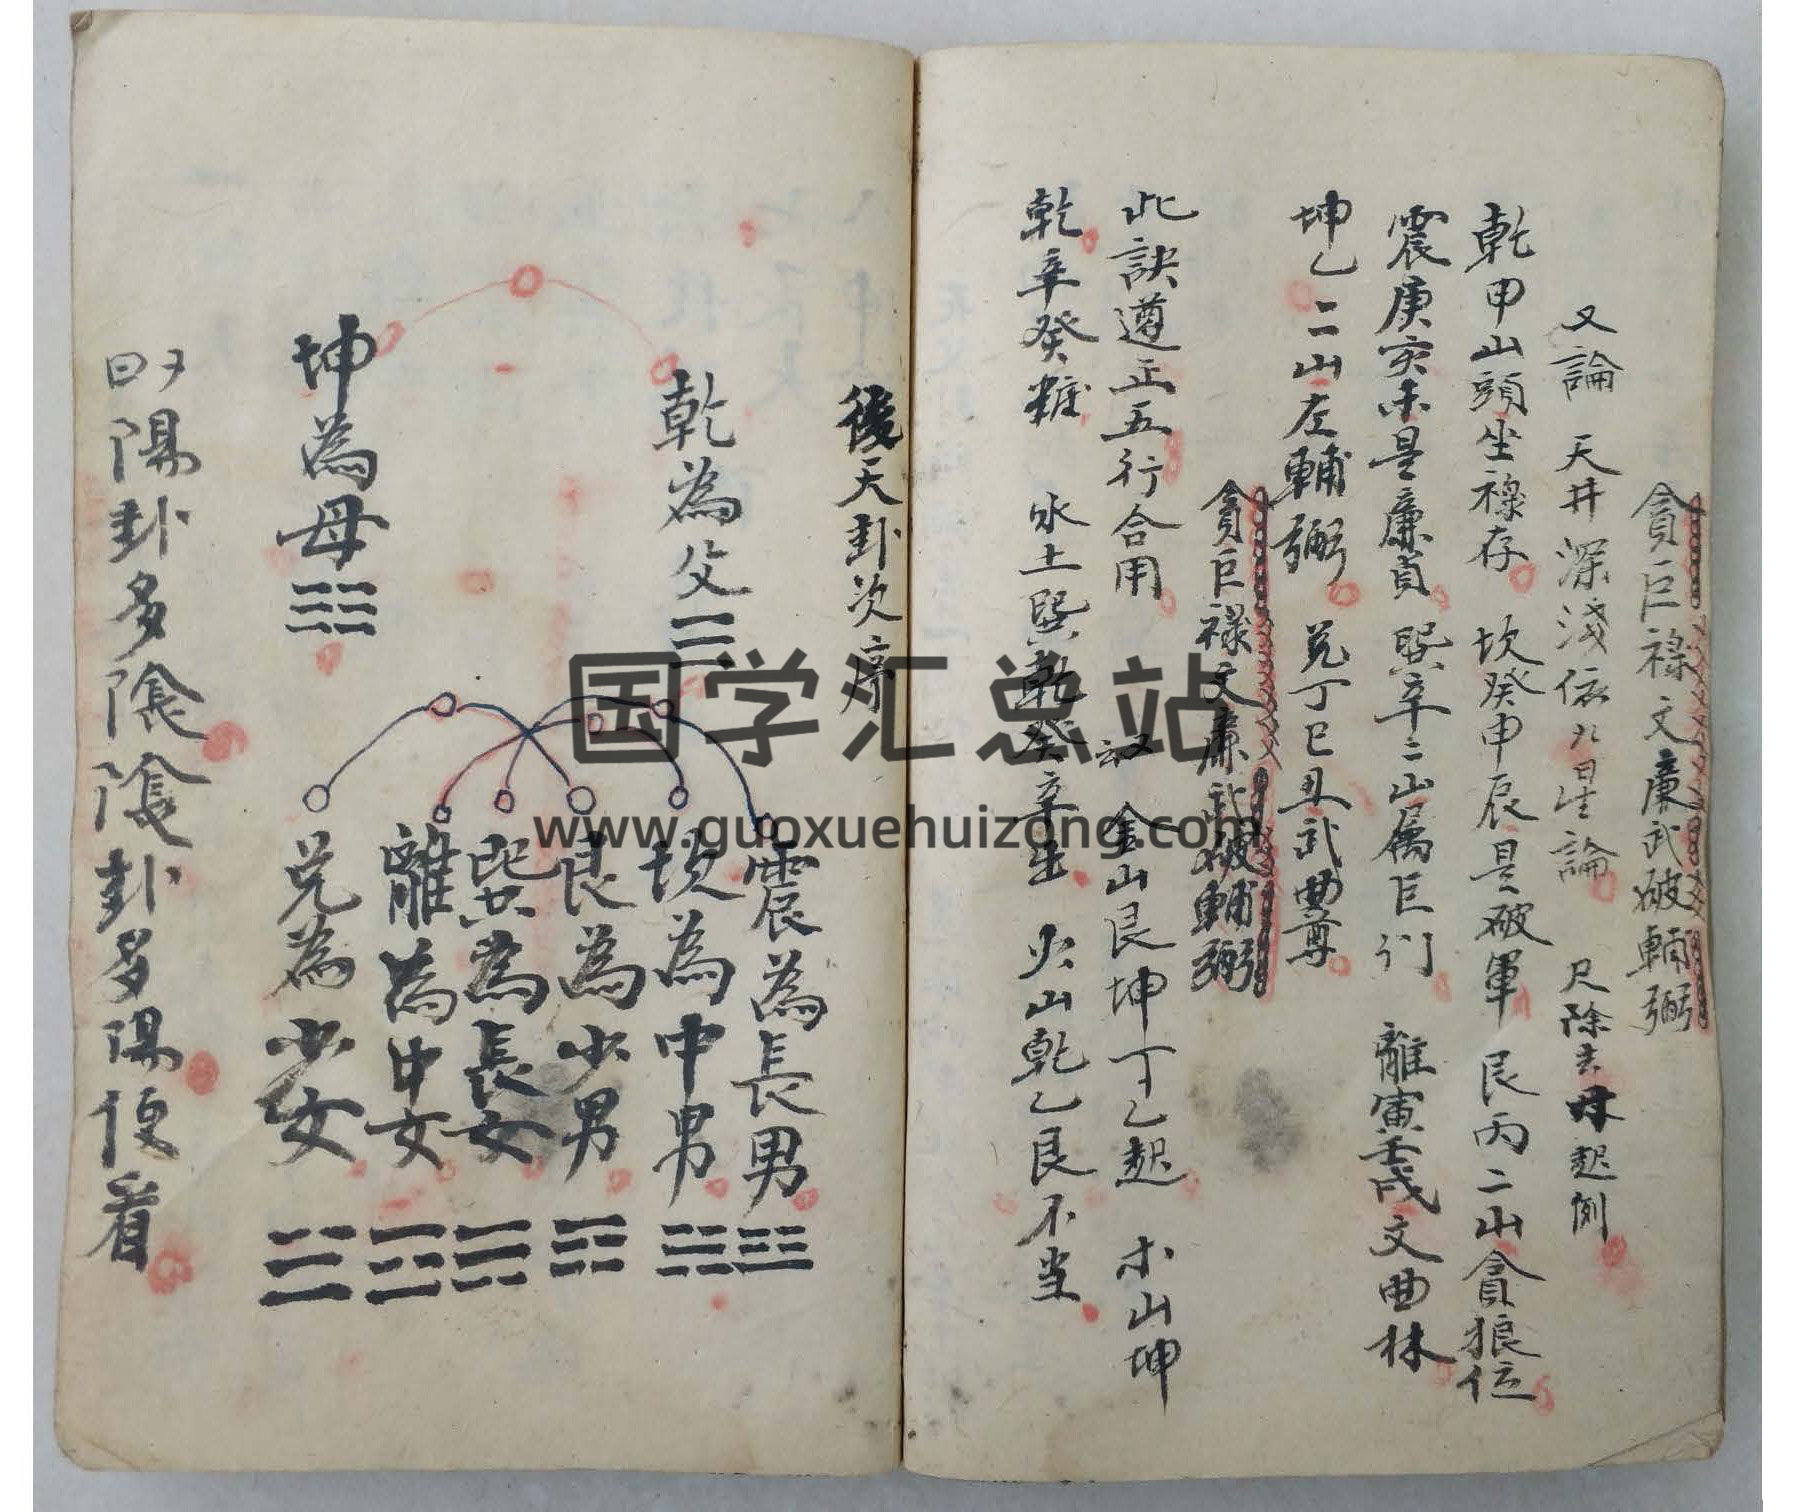 貪巨祿文廉武破輔弼
又論 天井深淺依九星論 尺除去 起例
乾甲山頭坐祿存 坎癸申辰是破軍 艮丙二山貪狼位
震庚亥未是廉貞 巽辛二山属巨门 離寅壬戌文曲林
坤乙二山左輔弼 兌丁巳丑武曲尊
貪巨祿文廉武破輔弼
此訣遵正五行合用 又云 金山艮坤丁乙起 木山坤
乾辛癸 水土巽乾癸辛生 火山乾乙艮不当
後天卦次序
乾為父☰
坤為母☷
震為長男☳
坎為中男☵
艮為少男☶
巽為長女☴
離為中女☲
兌為少女☱
以陽卦多陰陰卦多陽便看
国学汇总站
www.guoxuehuizong.com